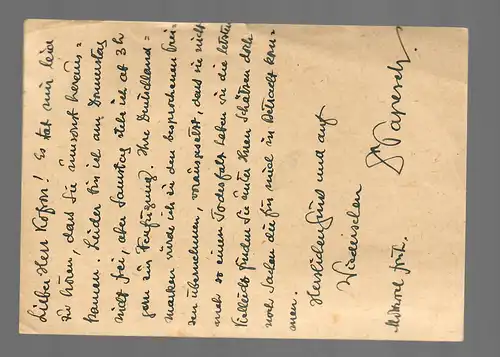 Lieber Herr Kofron! Es tat mir leid
zu hören, dass Sie umsonst heraus=
kamen. Leider bin ich am Donnerstag
nicht frei, aber Samstag stehe ich ab 3h
gern zur Verfügung. Ihre Deutschland=
marken würde ich zu den besprochenen Prei=
sen übernehmen, vorausgesetzt, dass sie nicht
mehr so einen Todesfalt haben wie die letzten.
Vielleicht finden Sie unter Ihren Schätzen doch
noch Sachen die für mich in Betracht kom=
men.
Herzlichen Gruss und auf
Wiedersehen
Dr Paresch.
Mittwoch früh.